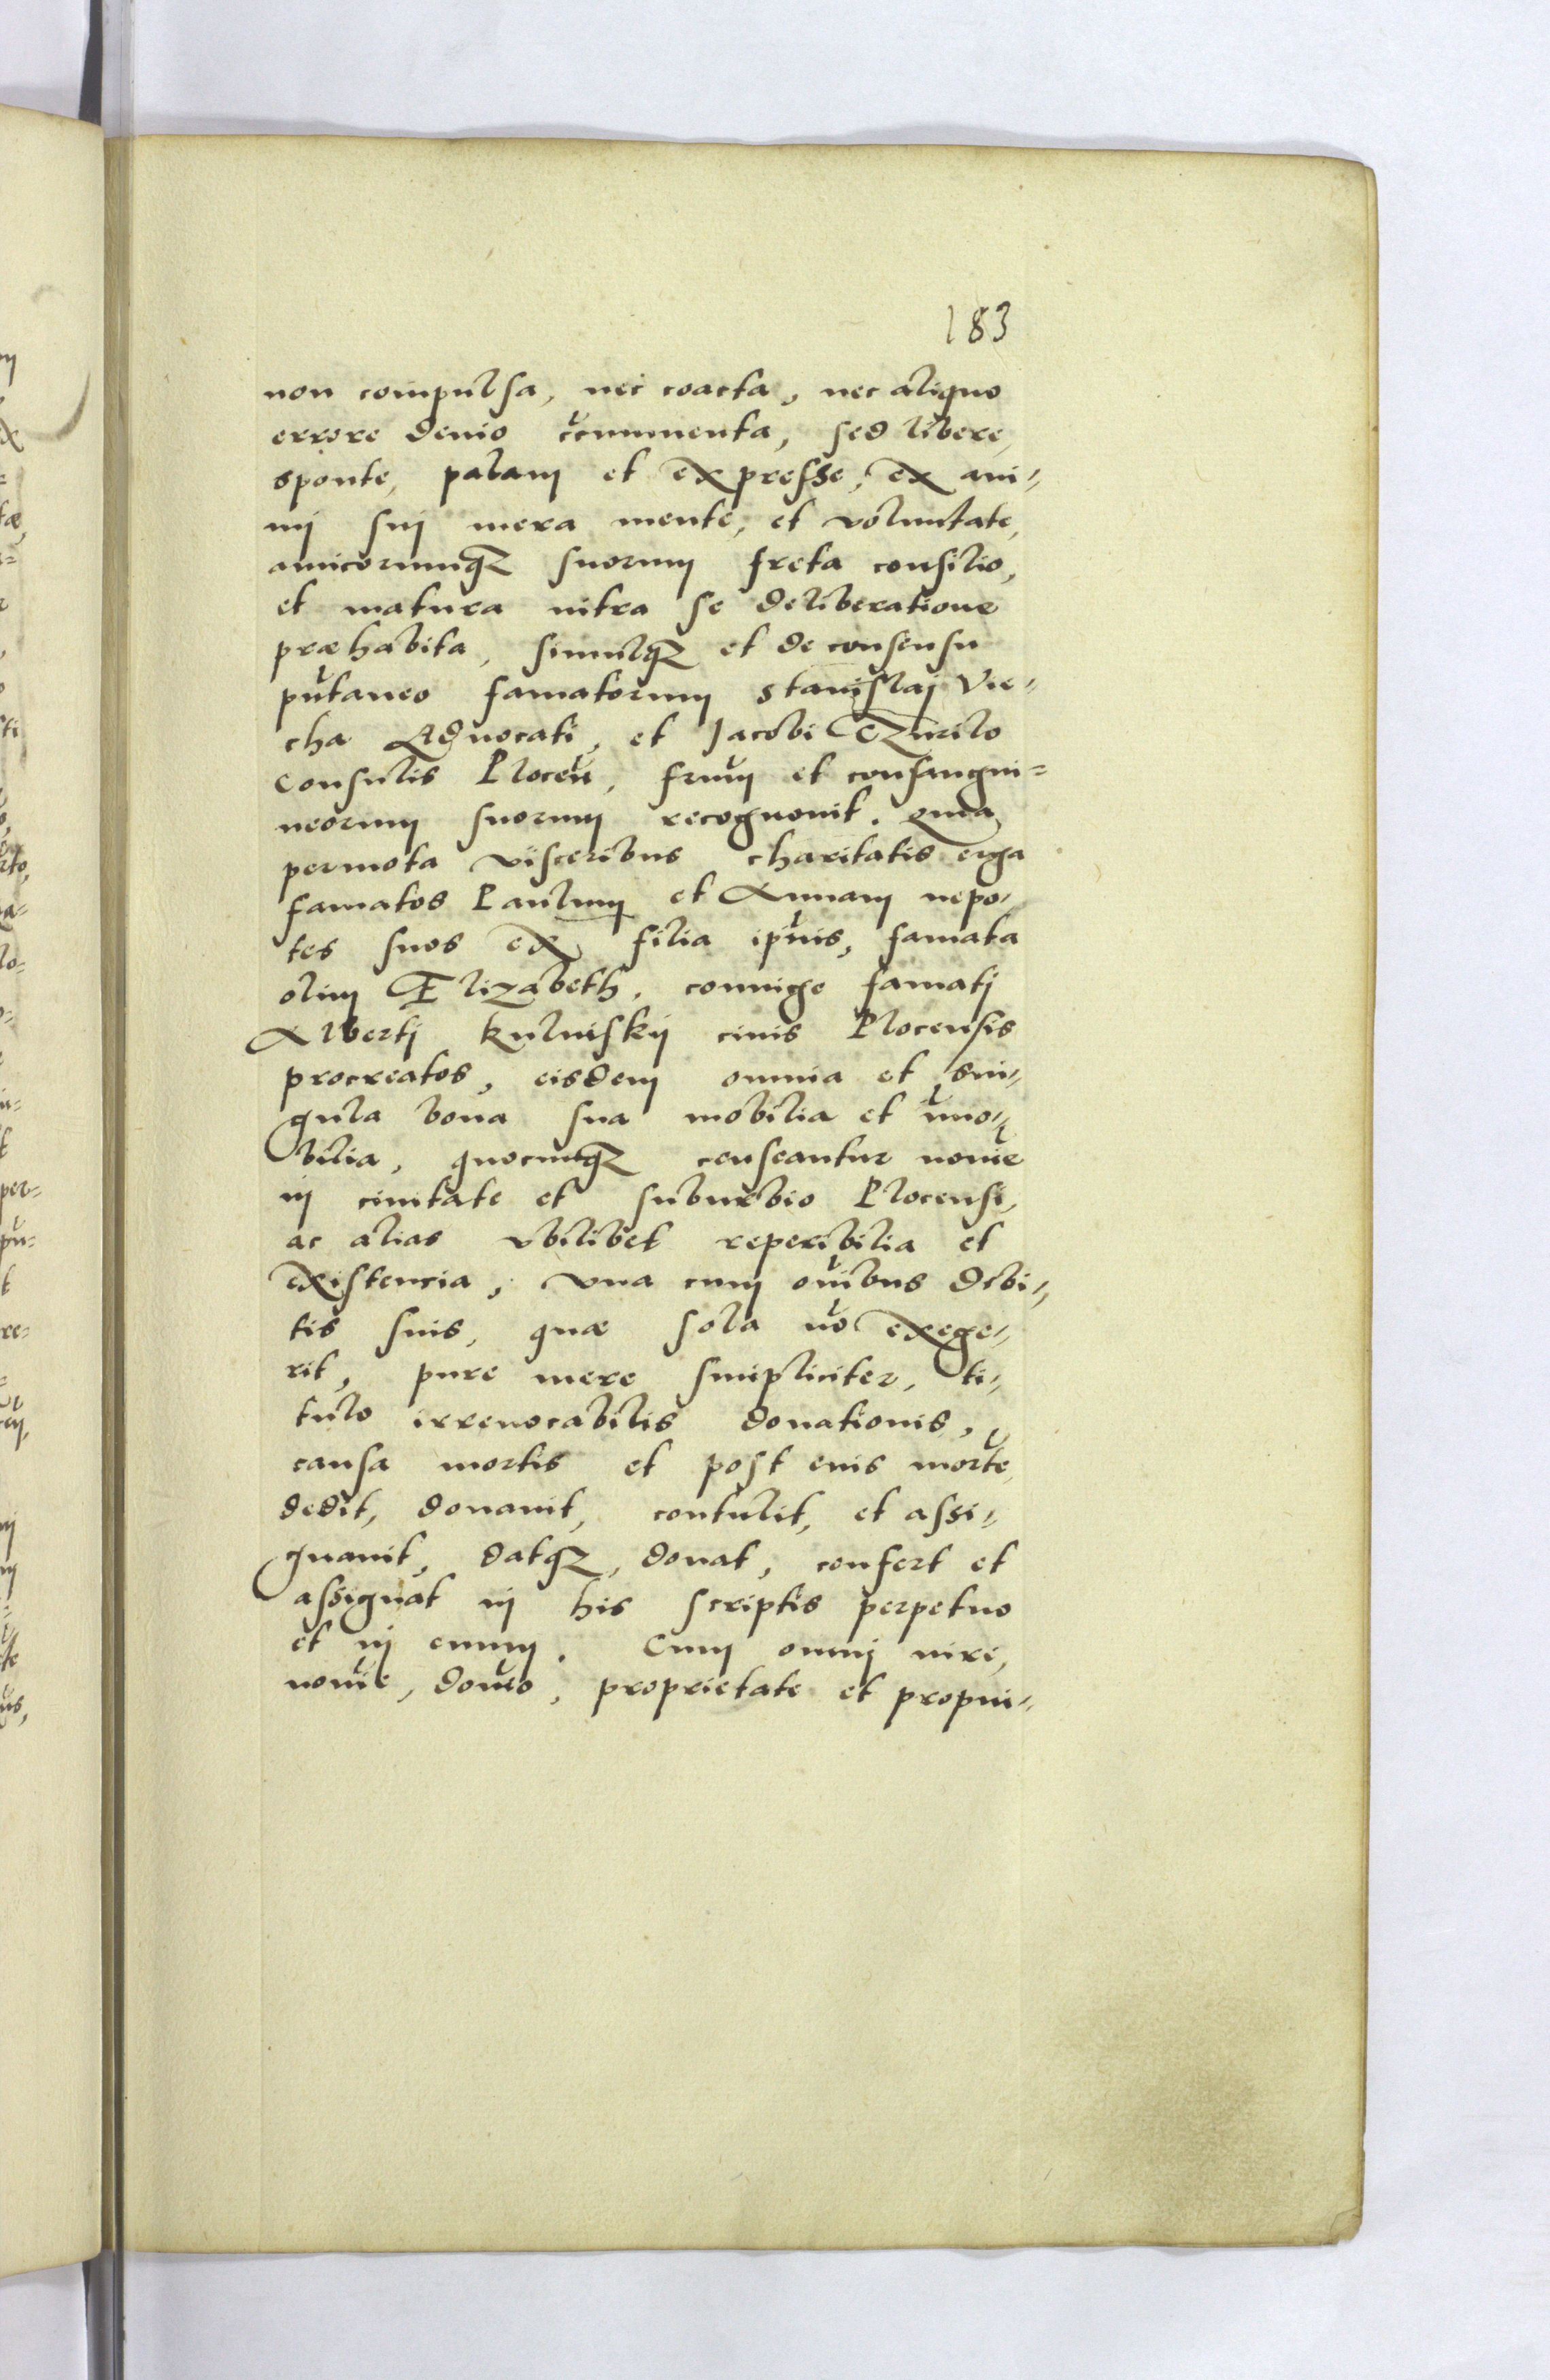 183
non compulsa, nec coacta, nec aliquo
errore devio circumventa, sed libere,
sponte, palam et expresse, ex ani=
mj suj mera mente, et voluntate,
amicorumqz suorum freta consilio,
et matura intra se deliberatione
præhabita, simulqz et de consensu
putaneo famatorum Stanislaj Vie=
cha Aduocati, et Jacobi Czurilo
Consulis Plocen, frum et consangui=
neorum suorum recognouit. Quia
permota visceribus charitatis erga
famatos Paulum et Annam nepo=
tes suos ex filia ipius, famata
olim Elizabeth, coniuge famatj
Albertj Kulniskij ciuis Plocensis
procreatos, eisdem omnia et sin=
gula bona sua mobilia et imo=
bilia, quocunqz censeantur noie
in ciuitate et suburbio Plocensi,
ac alias vbilibet reperibilia et
existencia, vna cum oibus debi=
tis suis, quæ sola no exege=
rit, pure mere simpliciter, ti=
tulo irreuocabilis donationis,
causa mortis et post eius morte
dedit, donauit, contulit, et assi=
gnauit, datqz, donat, confert et
assignat in his scriptis perpetuo
et in euum. Cum omnj iure,
noie, domio, proprietate et propin=